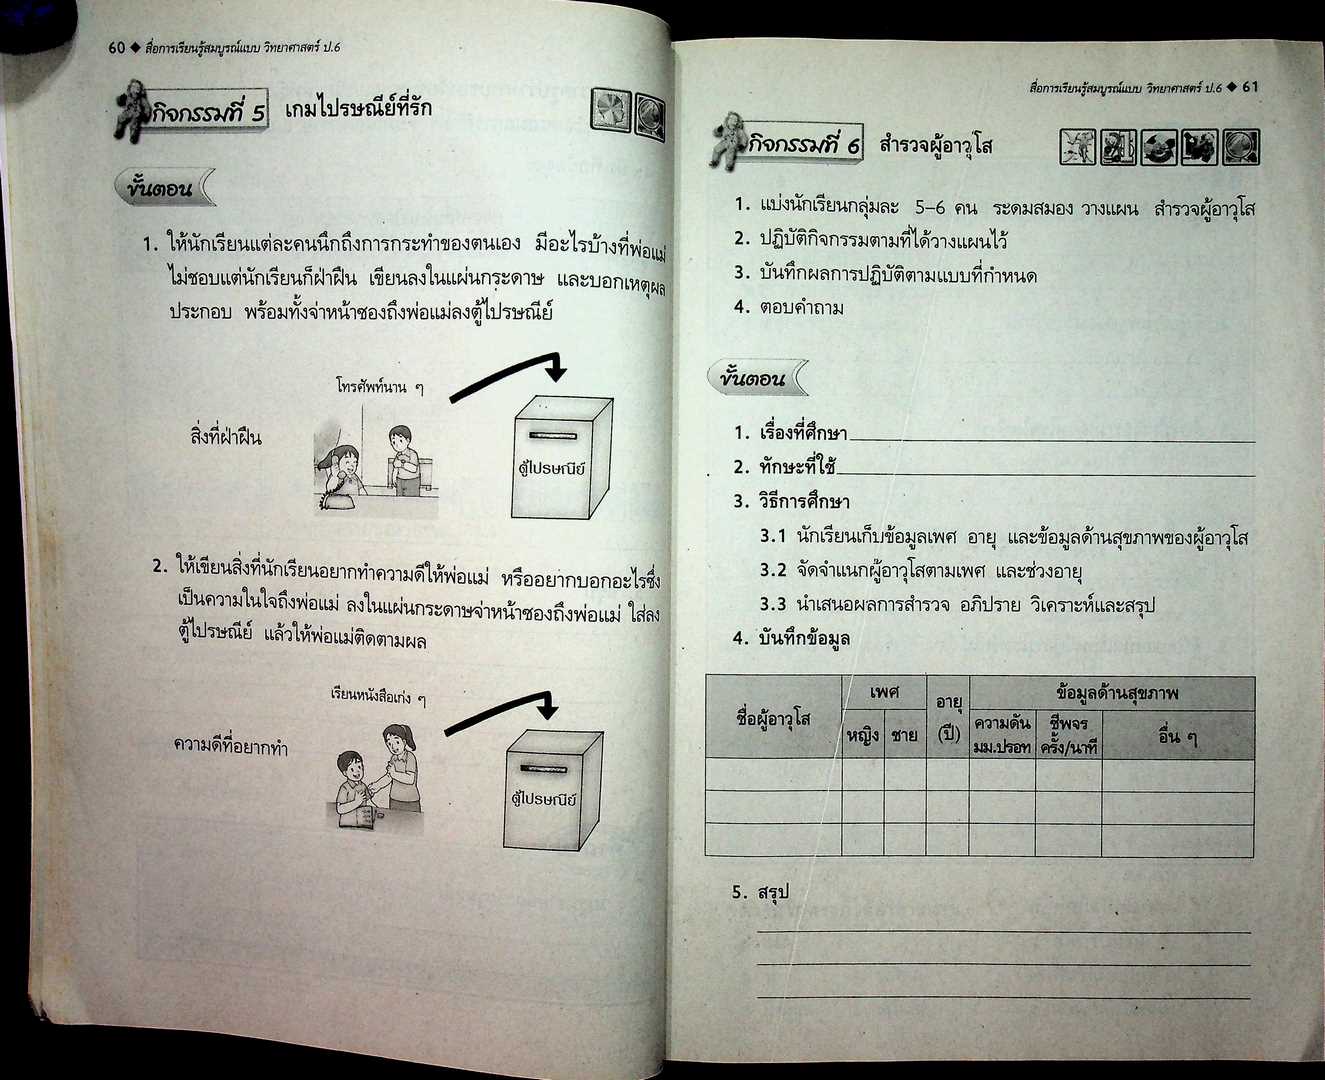 60 ◆ สื่อการเรียนรู้สมบูรณ์แบบ วิทยาศาสตร์ ป.6
กิจกรรมที่ 5 เกมไปรษณีย์ที่รัก
ขั้นตอน
1. ให้นักเรียนแต่ละคนนึกถึงการกระทำของตนเอง มีอะไรบ้างที่พ่อแม่
ไม่ชอบแต่นักเรียนก็ฝ่าฝืน เขียนลงในแผ่นกระดาษ และบอกเหตุผล
ประกอบ พร้อมทั้งจ่าหน้าซองถึงพ่อแม่ลงตู้ไปรษณีย์
โทรศัพท์นาน ๆ
สิ่งที่ฝ่าฝืน
ตู้ไปรษณีย์
2. ให้เขียนสิ่งที่นักเรียนอยากทำความดีให้พ่อแม่ หรืออยากบอกอะไรซึ่ง
เป็นความในใจถึงพ่อแม่ ลงในแผ่นกระดาษจ่าหน้าซองถึงพ่อแม่ ใส่ลง
ตู้ไปรษณีย์ แล้วให้พ่อแม่ติดตามผล
เรียนหนังสือเก่ง ๆ
ความดีที่อยากทำ
ตู้ไปรษณีย์
สื่อการเรียนรู้สมบูรณ์แบบ วิทยาศาสตร์ ป.6 ◆ 61
กิจกรรมที่ 6 สำรวจผู้อาวุโส
1. แบ่งนักเรียนกลุ่มละ 5–6 คน ระดมสมอง วางแผน สำรวจผู้อาวุโส
2. ปฏิบัติกิจกรรมตามที่ได้วางแผนไว้
3. บันทึกผลการปฏิบัติตามแบบที่กำหนด
4. ตอบคำถาม
ขั้นตอน
1. เรื่องที่ศึกษา
2. ทักษะที่ใช้
3. วิธีการศึกษา
3.1 นักเรียนเก็บข้อมูลเพศ อายุ และข้อมูลด้านสุขภาพของผู้อาวุโส
3.2 จัดจำแนกผู้อาวุโสตามเพศ และช่วงอายุ
3.3 นำเสนอผลการสำรวจ อภิปราย วิเคราะห์และสรุป
4. บันทึกข้อมูล
ชื่อผู้อาวุโส เพศ อายุ (ปี) ข้อมูลด้านสุขภาพ
หญิง ชาย ความดัน มม.ปรอท ชีพจร ครั้ง/นาที อื่น ๆ
5. สรุป